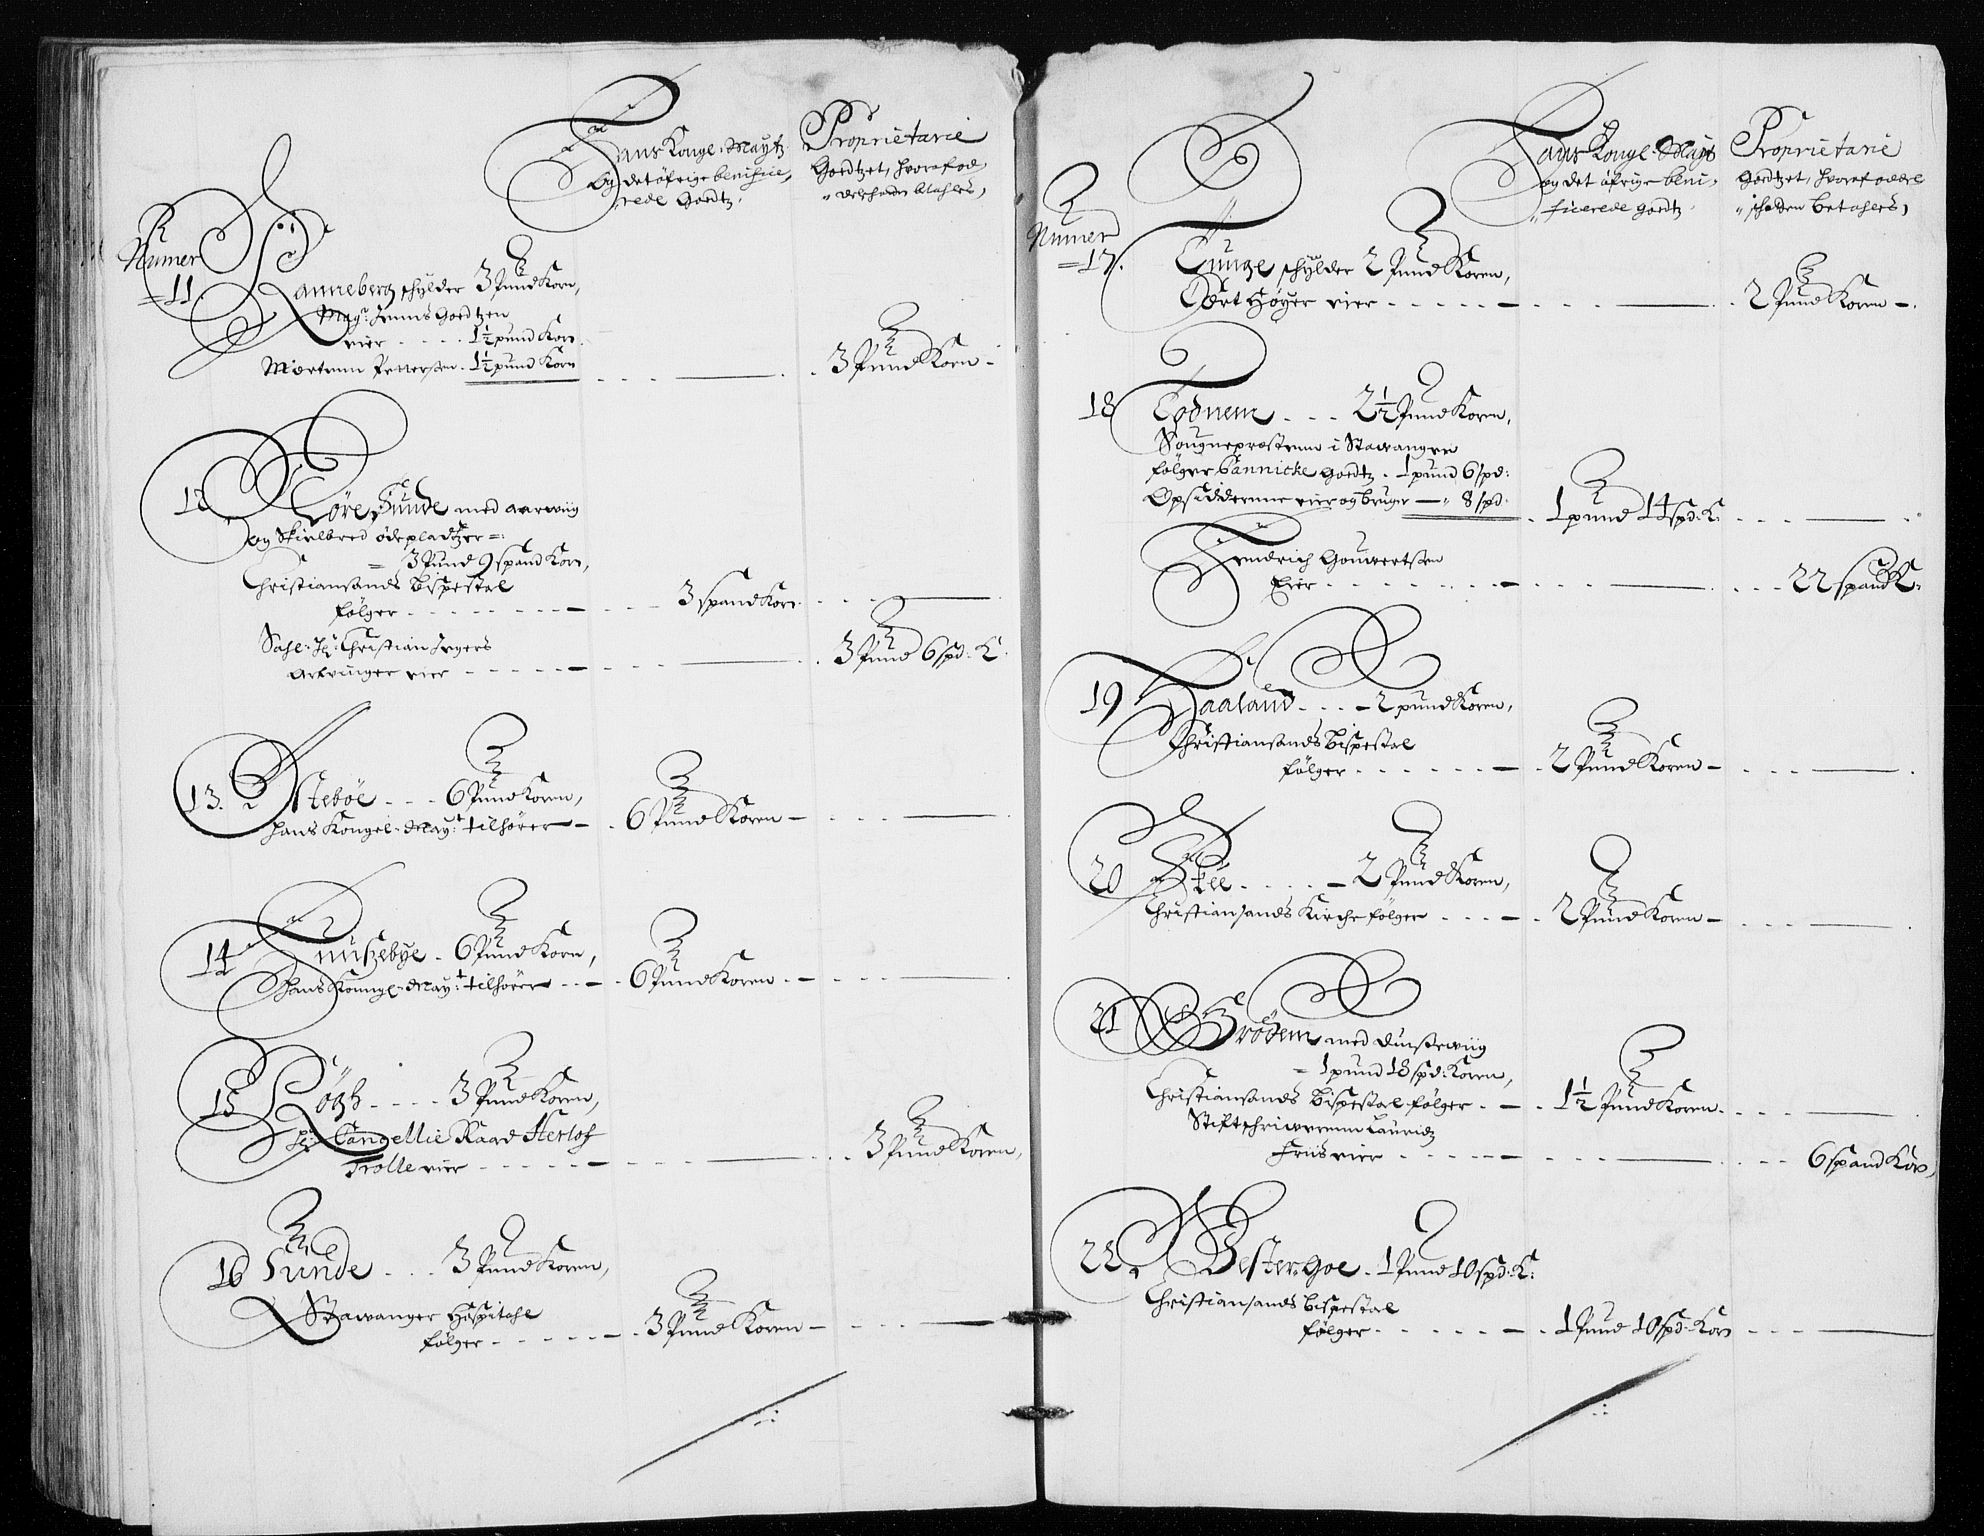 Hans Kongl: Mayt:
Og det öfrige benifice,
rede Goedtz,
Proprietarie
Goedtzet, hvoraf od
Numer
=11
Lanneberg schylder 3 Pund Korn,
Mag: Jens Goedtzen
eier - - - - 1½ pund Korn
Mortenn Pettersen. 1½ pund Korn - - - 3 Pund Korn -
12
Töresunde med aarewiig
og Skielbred ødepladtzer =:
= 3 Pund 9 spand Korn,
Christiansands bispestol
følger - - - - 3 spand Korn
Sahl: Hr: Christian Jegers
Arfvinger eier - - - - 3 Pund 6 spd: K:
13.
Østebøe - - - 6 Pund Koren,
Hans Kongel: May:t tilhører - - 6 Pund Koren -
14
Hunsebye - 6 Pund Korn,
Hans Kongl: May:t tilhører - - - 6 Pund Koren - -
15
Högh - - - - 3 Pund Koren,
Hr: Cancellie Raad Herlof
Trolle eier - - - - - 3 Pund Koren,
16
Sunde - - - 3 Pund Koren,
Stawanger Hospitahl
følger - - - - - 3 Pund Koren -
Hans Kongl: Mayt
og det öfrige beni,
ficerede goedtz
Proprietarie
Goedtzet, hvoraf odels
schatten betahles,
Numer
=17.
Tunge schylder 2 Pund Koren,
Cort Höyer eier - - - - - 2 Pund Koren -
18
Tödnem - - - 2½ Pund Koren,
Sougneprestenn i Stawanger
følger Cannicke Goedtz - 1 pund 6 spd:
Opsidderenne eier og bruger - 8 spd: - 1 pund 14 spd: K:
Hendrich Gouwertsen
Eier - - - - - 22 spand K:
19
Haaland - - - 2 pund Koren,
Christiansands bispestol
følger - - - - - 2 Pund Koren -
20
Skee - - - - 2 Pund Koren,
Christiansands Kirche følger - - - 2 Pund Koren -
21
Grödem med Dusewiig
= 1 pund 18 spd: Koren,
Christiansands bispestol følger - - 1½ Pund Koren
Stiftschriwerenn Lauridz
Friis eier - - - - - 6 spand Korn,
22
Westergoe - 1 Pund 10 spd: K:
Christiansands bispestol
følger - - - - - 1 Pund 10 spd: Korn